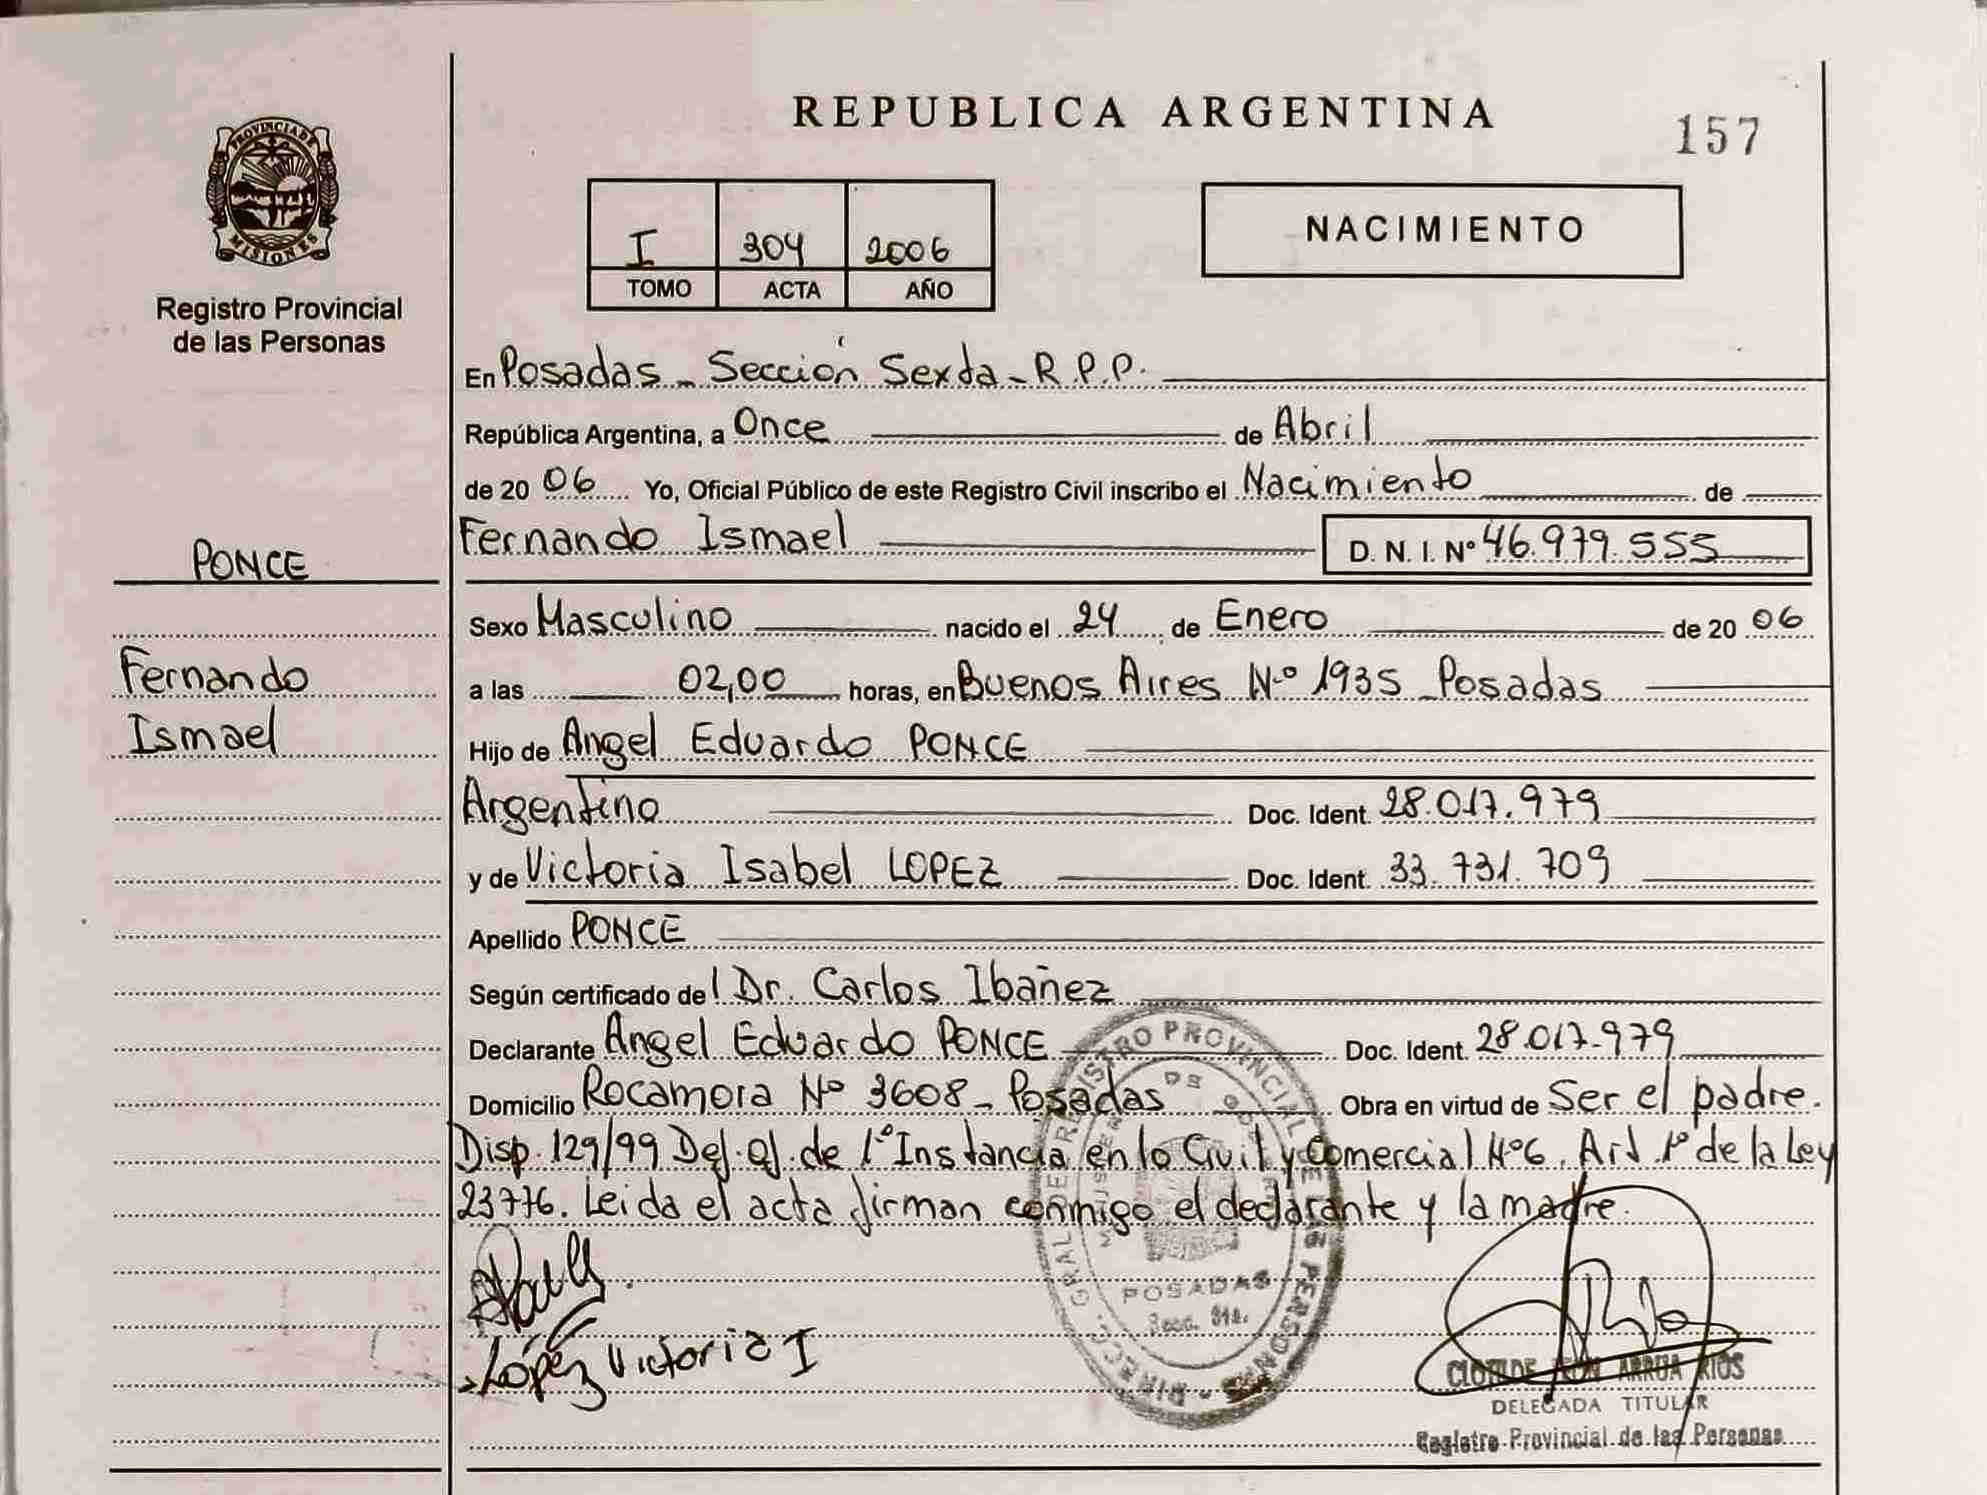 REPUBLICA ARGENTINA
157
PROVINCIA DE
MISIONES
Registro Provincial
de las Personas
I 304 2006
TOMO ACTA AÑO
NACIMIENTO
En Posadas - Sección Sexta - R.P.P.
República Argentina, a Once de Abril
de 20 06 Yo, Oficial Público de este Registro Civil inscribo el Nacimiento de
PONCE
Fernando Ismael D. N. I. Nº 46.979.555
Sexo Masculino nacido el 24 de Enero de 20 06
Fernando
a las 02,00 horas, en Buenos Aires Nº 1935 - Posadas
Ismael
Hijo de Angel Eduardo PONCE
Argentino Doc. Ident. 28.017.979
y de Victoria Isabel LOPEZ Doc. Ident. 33.731.709
Apellido PONCE
Según certificado de l Dr. Carlos Ibañez
Declarante Angel Eduardo PONCE Doc. Ident. 28.017.979
Domicilio Rocamora Nº 3608 - Posadas Obra en virtud de Ser el padre.
Disp. 129/99 Def. Of. de 1º Instancia en lo Civil y Comercial Nº6. Art. 1º de la Ley
23776. Leida el acta firman conmigo el declarante y la madre.
DIRECC. GRAL DE REGISTRO PROVINCIAL DE LAS PERSONAS
POSADAS
López Victoria I
ARRUA RIOS
DELEGADA TITULAR
Registro Provincial de las Personas